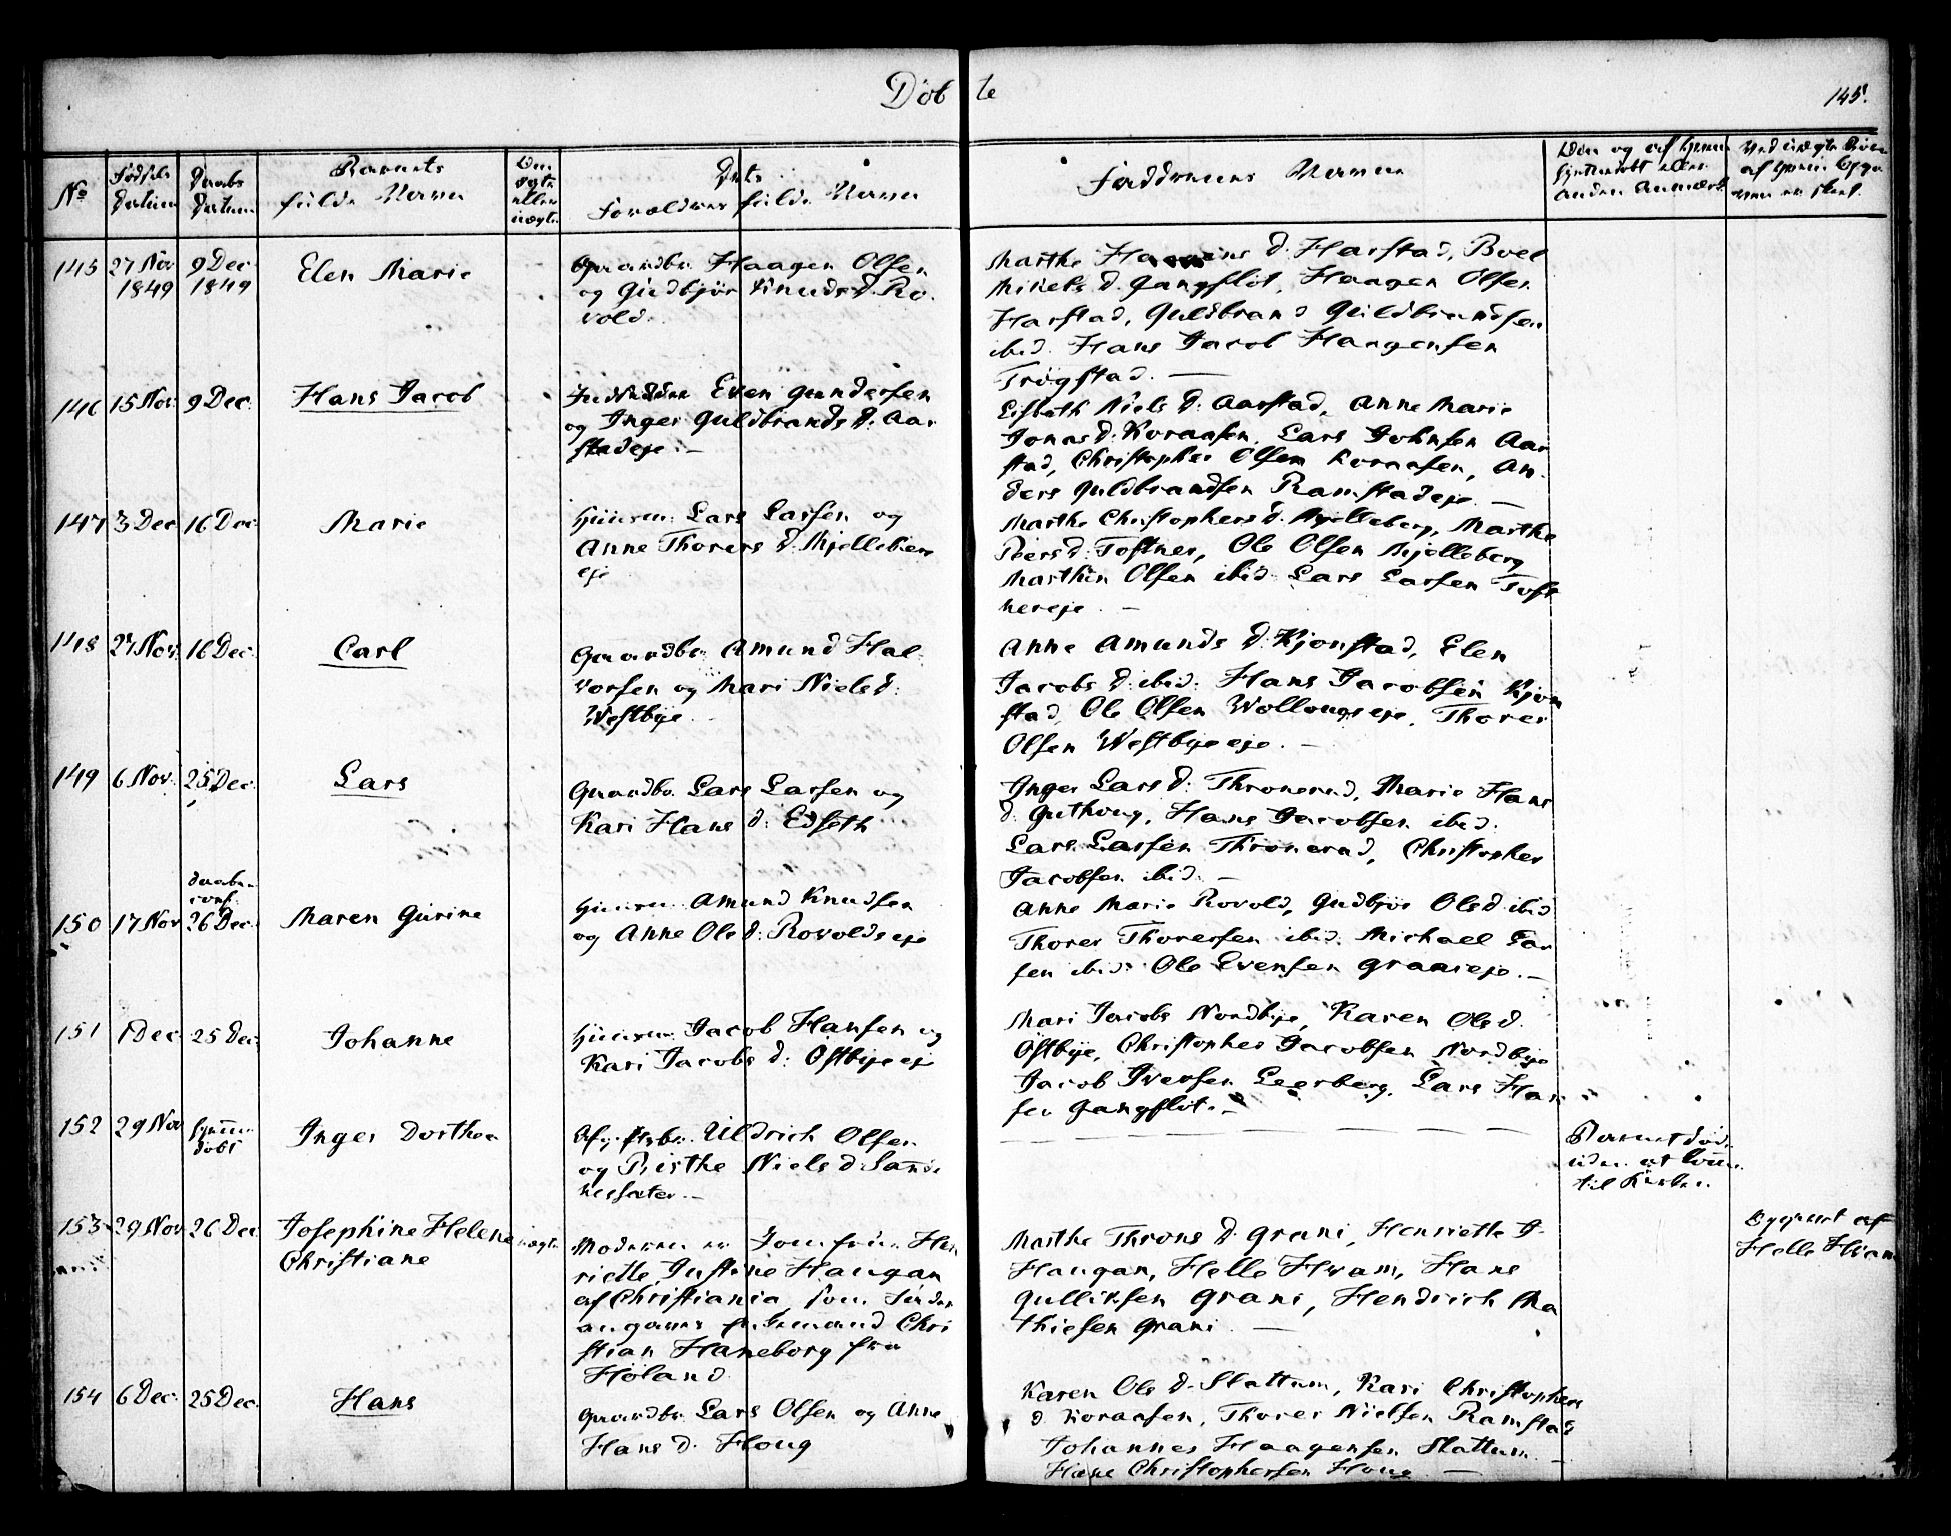 Døbte
145.
No
Fødsels Datum
Daabs Datum
Barnets fulde Navn
Om ægte eller uægte
Dets Forældres fulde Navn
Faddernes Navne
145 27 Nov 1849 9 Dec 1849 Elen Marie
Gaardbr. Haagen Olsen
og Gudbjør Knudsd. Ro
vold.
Marthe d. Harstad, Boel
Mikels d. Gangfløt, Haagen Olsen
Harstad, Guldbrand Guldbrandsen
ibid. Hans Jacob Haagensen
Trøgstad. —
146 15 Nov. 9 Dec. Hans Jacob
Even Gundersen
og Inger Guldbrands d. Aar
stadeje. —
Lisbeth Niels d. Aarstad, Anne Marie
Jonas d. Koraasen, Lars Johnsen Aar
stad, Christopher Olsen Koraasen, An
ders Guldbrandsen Ramstadeje. —
147 3 Dec 16 Dec. Marie
Huusm. Lars Larsen og
Anne Thorers d. Mjelleberg
eje
Marthe Christophers d. Mjelleberg, Marthe
Peers d. Toftner, Ole Olsen Mjelleberg
Marthin Olsen ibid. Lars Larsen Toft
nereje. —
148 27 Nov. 16 Dec. Carl
Gaardbr. Amund Hal
vorsen og Mari Niels d.
Westbye.
Anne Amunds d. Kjonstad, Elen
Jacobs d. ibid. Hans Jacobsen Kjon
stad, Ole Olsen Wollougseje, Thorer
Olsen Westbyeeje. —
149 6 Nov. 25 Dec. Lars
Gaardbr. Lars Larsen og
Kari Hans d. Edseth
Inger Lars d. Thronerud, Marie Hans
d. Guthoug, Hans Jacobsen ibid.
Lars Larsen Thronerud, Christopher
Jacobsen ibid. —
150 17 Nov daabs-conf. 26 Dec. Maren Gurine
Huusm. Amund Knudsen
og Anne Ols d. Rovoldseje
Anne Marie Rovold, Gudbjør Ols d. ibid
Thorer Thorersen ibid. Michael Lar
sen ibid. Ole Evensen Graaneje. —
151 1 Dec 25 Dec. Johanne
Huusm. Jacob Hansen og
Kari Jacobs d. Østbyeeje
Mari Jacobs Nordbye, Karen Ols d.
Østbye, Christopher Jacobsen Nordbye
Jacob Iversen Leerberg, Lars Han
sen Gangfløt. —
152 29 Nov hjemmedøbt Inger Dorthea
Uldrich Olsen
og Birthe Niels d. Sand
nessæter. —
Barnet død
uden at komme
til Kirken.
153 29 Nov 26 Dec Josephine Helene uægte
Christiane
Moderen er Jomfrue Hen
riette Justine Haugan
af Christiania, som Fader
angaves Christian Haneborg fra
Høland.
Marthe Throns d. Grani, Henriette J.
Haugan, Helle Hvam, Hans
Gulliksen Grani, Hendrich Ma
thiesen Grani. —
Opgivet af
Helle Hvam
154 6 Dec. 25 Dec. Hans
Gaardbr. Lars Olsen og Anne
Hans d. Houg
Karen Ols d. Slattum, Kari Christophers
d. Koraasen, Thorer Nielsen Ramstad
Johannes Haagensen Slattum
Hans Christophersen Houg —